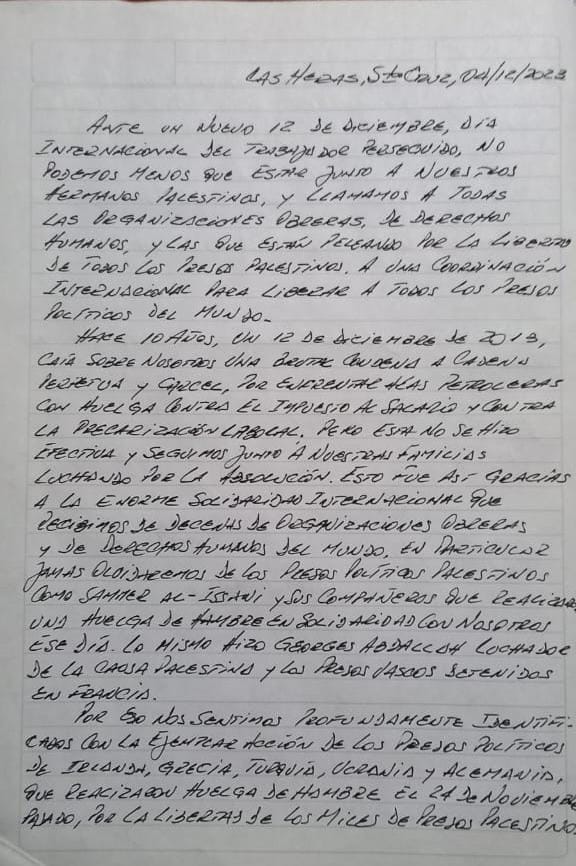 LAS HERAS, Sta CRUZ, 04/12/2023
ANTE UN NUEVO 12 DE DICIEMBRE, DÍA
INTERNACIONAL DEL TRABAJADOR PERSEGUIDO, NO
PODEMOS MENOS QUE ESTAR JUNTO A NUESTROS
HERMANOS PALESTINOS, Y LLAMAMOS A TODAS
LAS ORGANIZACIONES OBRERAS, DE DERECHOS
HUMANOS, Y LAS QUE ESTÁN PELEANDO POR LA LIBERTAD
DE TODOS LOS PRESOS PALESTINOS. A UNA COORDINACIÓN
INTERNACIONAL PARA LIBERAR A TODOS LOS PRESOS
POLÍTICOS DEL MUNDO.-
HACE 10 AÑOS, UN 12 DE DICIEMBRE DE 2013,
CAÍA SOBRE NOSOTROS UNA BRUTAL CONDENA A CADENA
PERPETUA Y CÁRCEL, POR ENFRENTAR A LAS PETROLERAS
CON HUELGA CONTRA EL IMPUESTO AL SALARIO Y CONTRA
LA PRECARIZACIÓN LABORAL. PERO ESTA NO SE HIZO
EFECTIVA Y SEGUIMOS JUNTO A NUESTRAS FAMILIAS
LUCHANDO POR LA ABSOLUCIÓN. ESTO FUE ASÍ GRACIAS
A LA ENORME SOLIDARIDAD INTERNACIONAL QUE
RECIBIMOS DE DECENAS DE ORGANIZACIONES OBRERAS
Y DE DERECHOS HUMANOS DEL MUNDO, EN PARTICULAR
JAMÁS OLVIDAREMOS DE LOS PRESOS POLÍTICOS PALESTINOS
COMO SAMMER AL-ISSAWI Y SUS COMPAÑEROS QUE REALIZARON
UNA HUELGA DE HAMBRE EN SOLIDARIDAD CON NOSOTROS
ESE DÍA. LO MISMO HIZO GEORGES ABDALLAH LUCHADOR
DE LA CAUSA PALESTINA Y LOS PRESOS VASCOS DETENIDOS
EN FRANCIA.
POR ESO NOS SENTIMOS PROFUNDAMENTE IDENTIFI-
CADOS CON LA EJEMPLAR ACCIÓN DE LOS PRESOS POLÍTICOS
DE IRLANDA, GRECIA, TURQUÍA, UCRANIA Y ALEMANIA,
QUE REALIZARON HUELGA DE HAMBRE EL 24 DE NOVIEMBRE
PASADO, POR LA LIBERTAD DE LOS MILES DE PRESOS PALESTINOS